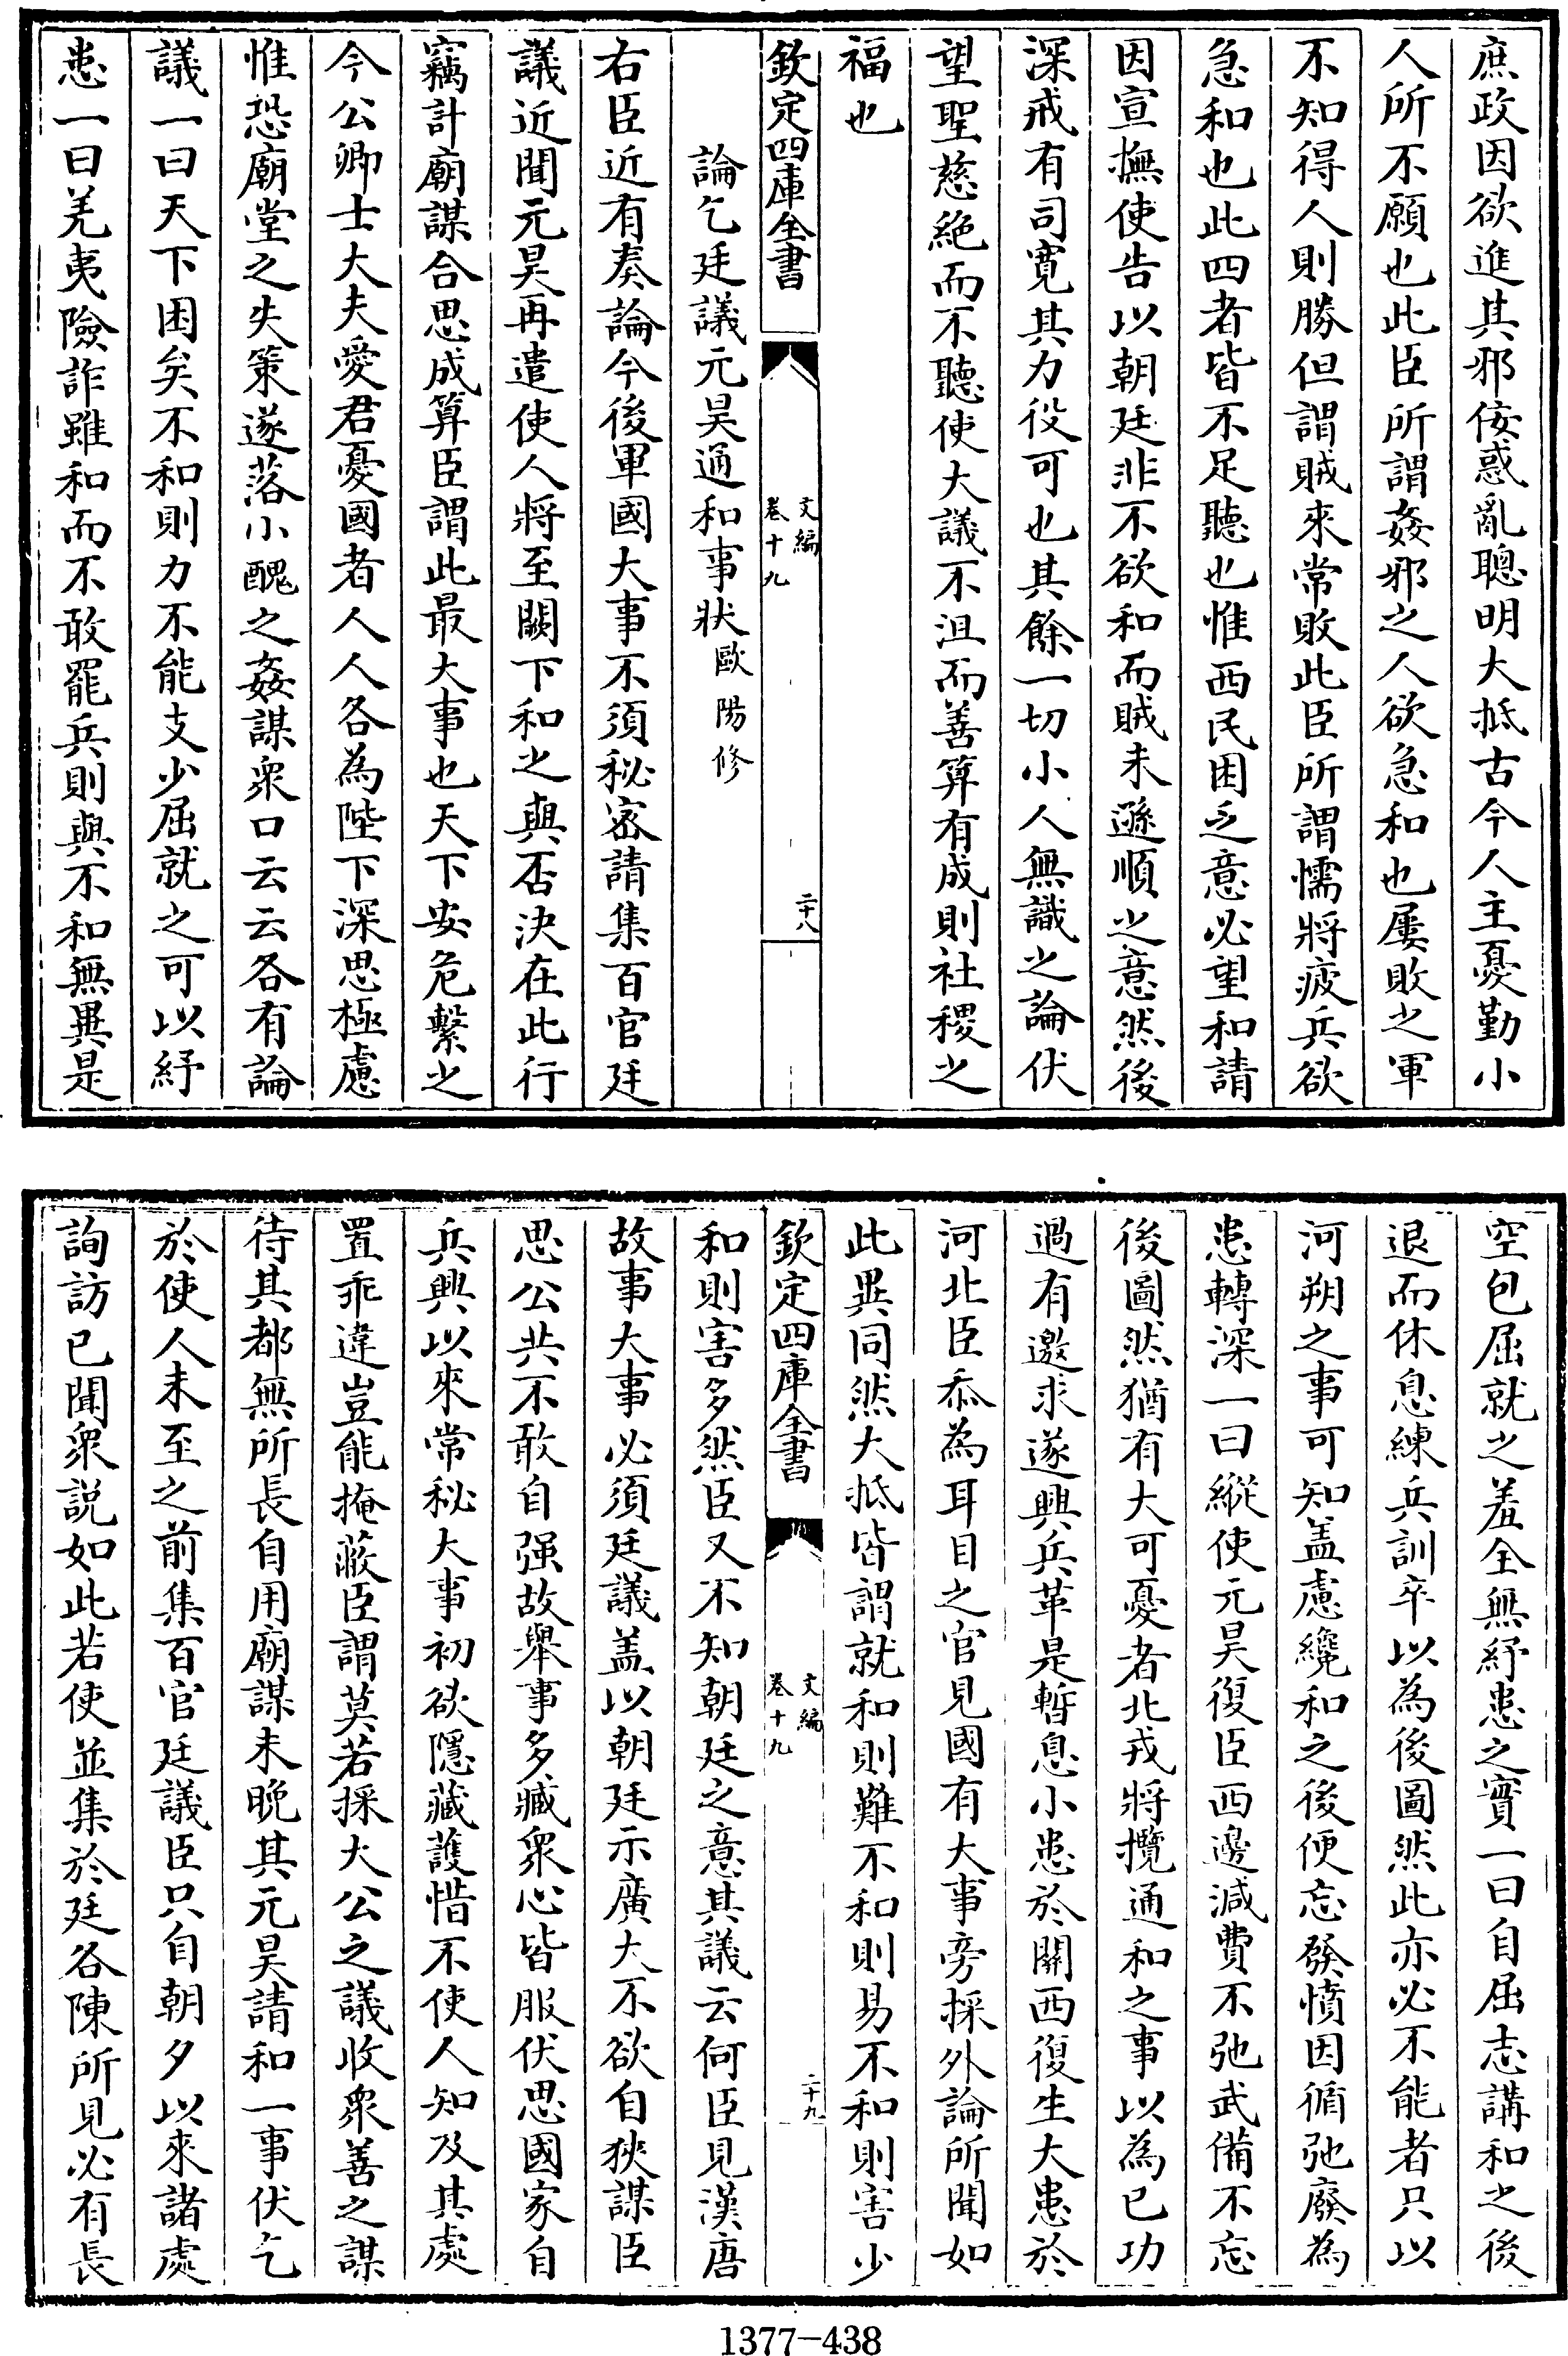 庶政因欲進其邪佞惑亂聰明大抵古今人主憂勤小
人所不願也此臣所謂姦邪之人欲急和也屢敗之軍
不知得人則勝但謂賊來常敗此臣所謂懦將疲兵欲
急和也此四者皆不足聽也惟西民困乏意必望和請
因宣撫使告以朝廷非不欲和而賊未遜順之意然後
深戒有司寬其力役可也其餘一切小人無識之論伏
望聖慈絶而不聽使大議不沮而善算有成則社稷之
福也
欽定四庫全書
文編
卷十九
二十八
論乞廷議元昊通和事狀歐陽修
右臣近有奏論今後軍國大事不須秘密請集百官廷
議近聞元昊再遣使人將至闕下和之與否決在此行
竊計廟謀合思成算臣謂此最大事也天下安危繫之
今公卿士大夫愛君憂國者人人各為陛下深思極慮
惟恐廟堂之失策遂落小醜之姦謀衆口云云各有論
議一曰天下困矣不和則力不能支少屈就之可以紓
患一曰羌夷險詐雖和而不敢罷兵則與不和無異是
空包屈就之羞全無紓患之實一曰自屈志講和之後
退而休息練兵訓卒以為後圖然此亦必不能者只以
河朔之事可知盖慮纔和之後便忘發憤因循弛廢為
患轉深一曰縱使元昊復臣西邊減費不弛武備不忘
後圖然猶有大可憂者北戎將攬通和之事以為已功
過有邀求遂興兵革是暫息小患於關西復生大患於
河北臣忝為耳目之官見國有大事旁採外論所聞如
此異同然大抵皆謂就和則難不和則易不和則害少
欽定四庫全書
文編
卷十九
二十九
和則害多然臣又不知朝廷之意其議云何臣見漢唐
故事大事必須廷議盖以朝廷示廣大不欲自狹謀臣
思公共不敢自强故舉事多臧衆心皆服伏思國家自
兵興以來常秘大事初欲隱藏護惜不使人知及其處
置乖違豈能掩蔽臣謂莫若採大公之議收衆善之謀
待其都無所長自用廟謀未晚其元昊請和一事伏乞
於使人未至之前集百官廷議臣只自朝夕以來諸處
詢訪已聞衆説如此若使並集於廷各陳所見必有長
1377-438